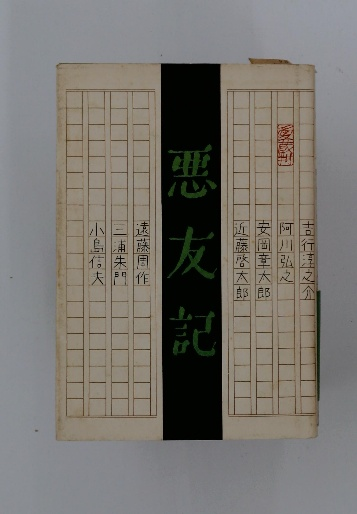 吉行淳之介
阿川弘之
安岡章太郎
近藤啓太郎
悪友記
遠藤周作
三浦朱門
小島信夫